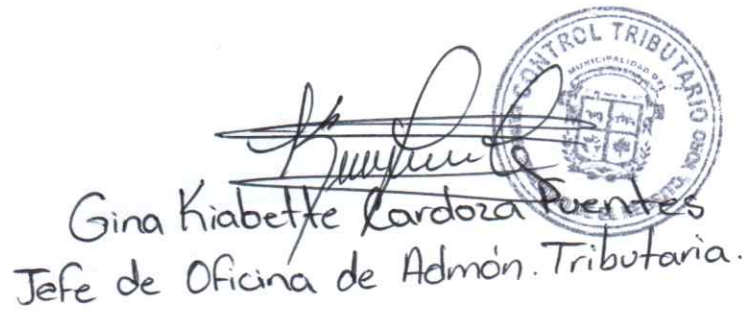 CONTROL TRIBUTARIO
MUNICIPALIDAD DEL
Gina Kiabette Cardoza Fuentes
Jefe de Oficina de Admón. Tributaria.